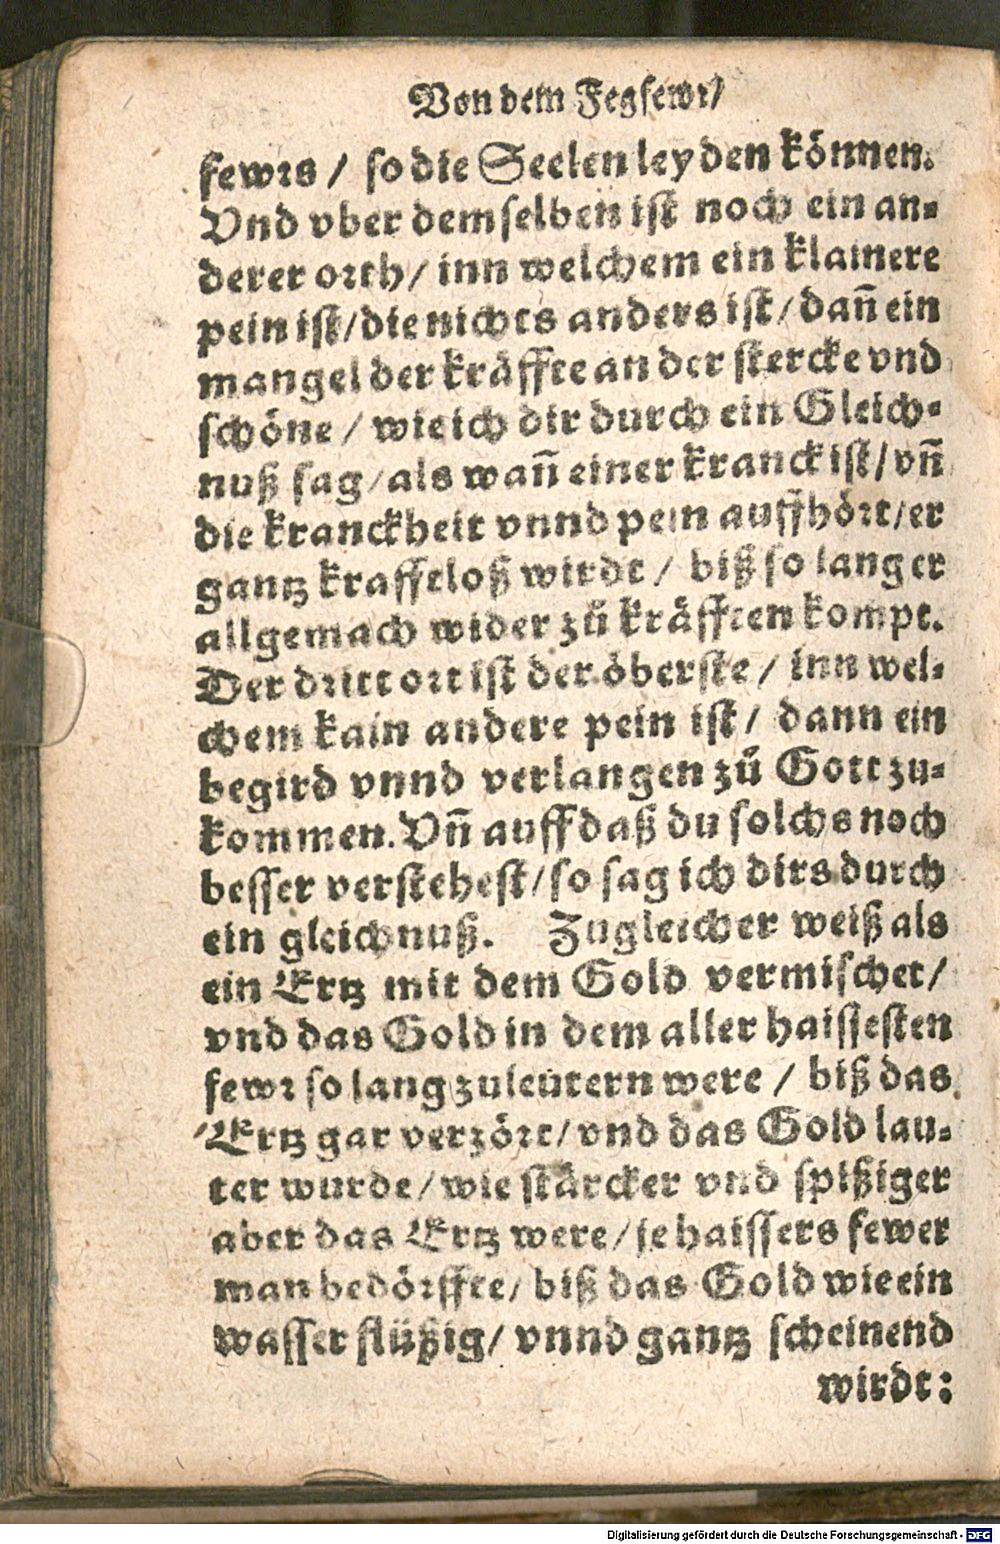 Von dem Fegfewr/
fewrs / so die Seelen leyden können.
Vnd vber demselben ist noch ein an-
derer orth/ inn welchem ein klainere
pein ist/die nichts anders ist/dañ ein
mangel der kräffte an der stercke vnd
schöne / wie ich dir durch ein Gleich-
nuß sag/als wañ einer kranck ist/vñ
die kranckheit vnnd pein auffhört/er
gantz krafftloß wirdt / biß so lang er
allgemach wider zů kräfften kompt.
Der dritt ort ist der öberste / inn wel-
chem kain andere pein ist/ dann ein
begird vnnd verlangen zů Gott zu-
kommen. Vñ auff daß du solchs noch
besser verstehest/so sag ich dirs durch
ein gleichnuß. Zugleicher weiß als
ein Ertz mit dem Gold vermischet/
vnd das Gold in dem aller haissesten
fewr so lang zuleutern were / biß das
Ertz gar verzört/vnd das Gold lau-
ter wurde/wie stärcker vnd spißiger
aber das Ertz were/je haissers fewer
man bedörffte/ biß das Gold wie ein
wasser flüßig/ vnnd gantz scheinend
wirdt:
Digitalisierung gefördert durch die Deutsche Forschungsgemeinschaft - DFG